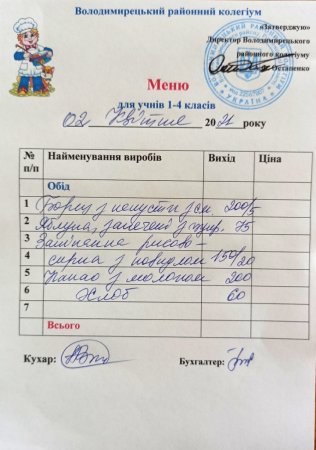 Володимирецький районний колегіум
«Затверджую»
Директор Володимирецького
районного колегіуму
Остапенко
УКРАЇНА
Меню
для учнів 1-4 класів
02 квітня 2021 року
№ п/п Найменування виробів Вихід Ціна
Обід
1 Борщ з капусти з см. 200/5
2 Яблука, запечені з цукр. 75
3 Запіканка рисово-
4 сирна з повидлом 150/20
5 Какао з молоком 200
6 Хліб 60
7
Всього
Кухар:
Бухгалтер: